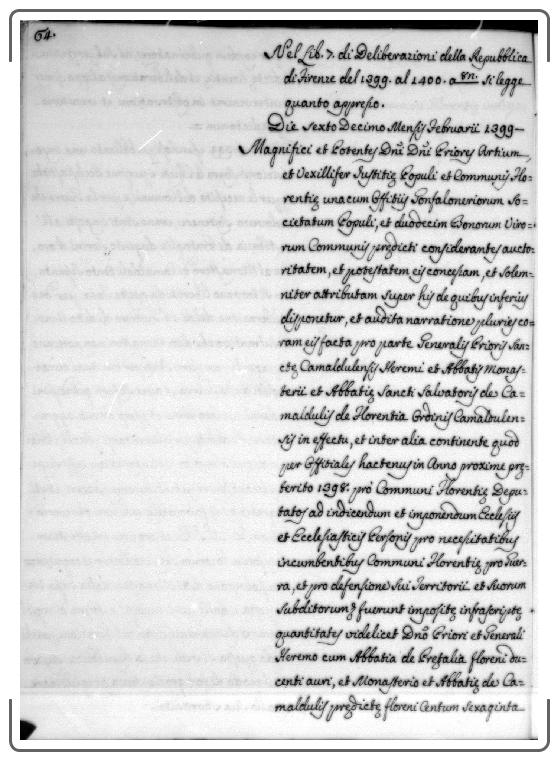 64.
Nel Lib. 7. di Deliberazioni della Repubblica
di Firenze del 1399. al 1400. a 8n. si legge
quanto appresso.
Die Sexto Decimo Mensis Februarii 1399 —
Magnifici et Potentes Dnĩ Dnĩ Priores Artium,
et Vexillifer Justitię Populi et Communis Flo=
rentię unacum Offitiis Gonfaloneriorum So=
cietatum Populi, et duodecim Bonorum Viro=
rum Communis predicti considerantes aucto=
ritatem, et potestatem eis concessam, et solem=
niter attributam super his de quibus inferius
disponetur, et audita narratione pluries co=
ram eis facta pro parte Generalis Prioris San=
ctę Camaldulensis Heremi et Abbatis Monas=
terii et Abbatię Sancti Salvatoris de Ca=
maldulis de Florentia Ordinis Camaldulen=
sis in effectu, et inter alia continente quod
per Offitiales hactenus in Anno proxime prę=
terito 1398. pro Communi Florentię Depu=
tatos ad indicendum et imponendum Ecclesiis
et Ecclesiasticis Personis pro necessitatibus
incumbentibus Communi Florentię pro Guer=
ra, et pro defensione Sui Territorii et Suorum
Subditorumq̃ fuerunt impositę infrascriptę
quantitates videlicet Dnõ Priori et Generali
Heremo cum Abbatia de Pretalia floreni du=
centi auri, et Monasterio et Abbatię de Ca=
maldulis prędictę floreni Centum Sexaginta